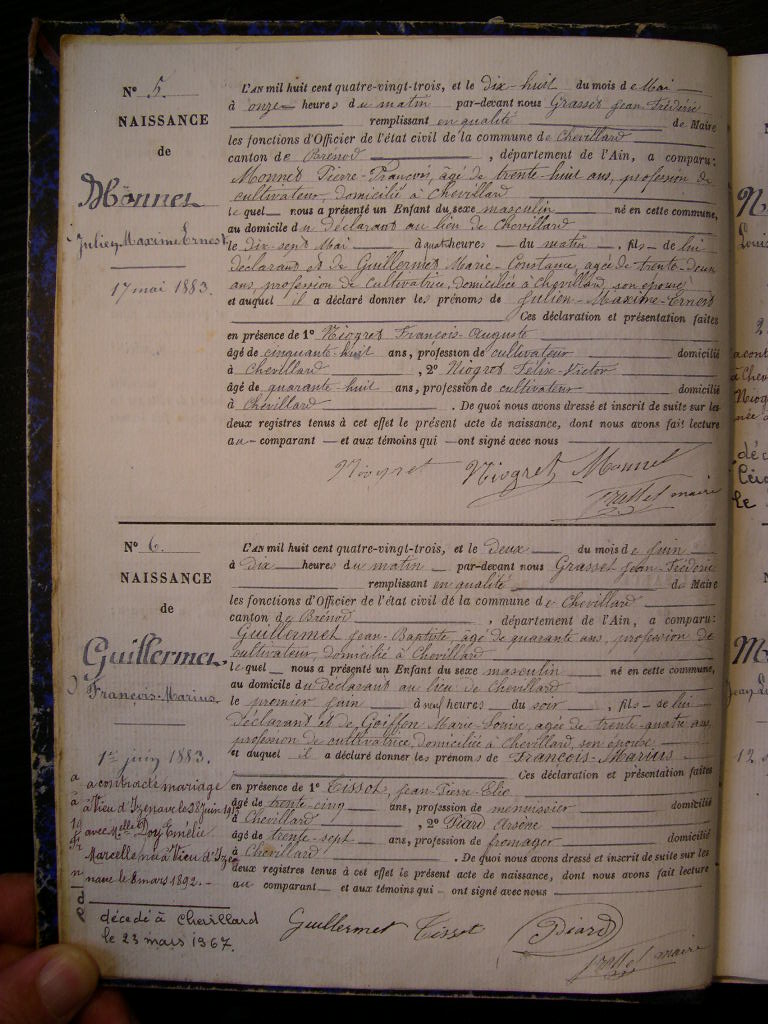 N° 5.
NAISSANCE
de
Monnet
Julien Maxime Ernest
17 mai 1883.
L'AN mil huit cent quatre-vingt-trois, et le dix-huit du mois de Mai
à onze heures du matin par-devant nous Grasset Jean-Frédéric
remplissant en qualité de Maire
les fonctions d'Officier de l'état civil de la commune de Chevillard
canton de Brénod, département de l'Ain, a comparu:
Monnet Pierre-François, âgé de trente-huit ans, profession de
cultivateur, domicilié à Chevillard
le quel nous a présenté un Enfant du sexe masculin né en cette commune,
au domicile du déclarant au lieu de Chevillard
le dix-sept Mai à quat heures du matin, fils de lui
déclarant et de Guillermet Marie-Constance, agée de trente-deux
ans, profession de Cultivatrice, domiciliée à Chevillard, son épouse
et auquel il a déclaré donner les prénoms de Julien-Maxime-Ernest
Ces déclaration et présentation faites
en présence de 1° Niogret François-Auguste
âgé de cinquante-huit ans, profession de cultivateur domicilié
à Chevillard, 2° Niogret Félix-Victor
âgé de quarante-huit ans, profession de cultivateur domicilié
à Chevillard. De quoi nous avons dressé et inscrit de suite sur les
deux registres tenus à cet effet le présent acte de naissance, dont nous avons fait lecture
au comparant et aux témoins qui ont signé avec nous
Niogret Niogret Monnet
Grasset maire
N° 6.
NAISSANCE
de
Guillermet
François-Marius
1er juin 1883.
a contracté mariage
à Vieu d'Izenave le 28 juin 19
avec Melle Poy Emélie
Marcelle née à Vieu d'Ize
nave le 8 mars 1892.
décédé à Chevillard
le 23 mars 1967.
L'AN mil huit cent quatre-vingt-trois, et le deux du mois de juin
à dix heures du matin par-devant nous Grasset Jean-Frédéric
remplissant en qualité de Maire
les fonctions d'Officier de l'état civil de la commune de Chevillard
canton de Brénod, département de l'Ain, a comparu:
Guillermet Jean-Baptiste, agé de quarante ans, profession de
cultivateur, domicilié à Chevillard
le quel nous a présenté un Enfant du sexe masculin né en cette commune,
au domicile du déclarant au lieu de Chevillard
le premier juin à neuf heures du soir, fils de lui
déclarant et de Goiffon Marie-Louise, agée de trente-quatre ans,
profession de cultivatrice, domiciliée à Chevillard, son épouse
et auquel il a déclaré donner les prénoms de François-Marius
Ces déclaration et présentation faites
en présence de 1° Tissot, Jean-Pierre-Elie
âgé de trente-cinq ans, profession de menuisier domicilié
à Chevillard, 2° Péard Arsène
âgé de trente-sept ans, profession de fromager domicilié
à Chevillard. De quoi nous avons dressé et inscrit de suite sur les
deux registres tenus à cet effet le présent acte de naissance, dont nous avons fait lecture
au comparant et aux témoins qui ont signé avec nous
Guillermet Tissot Péard
Grasset maire